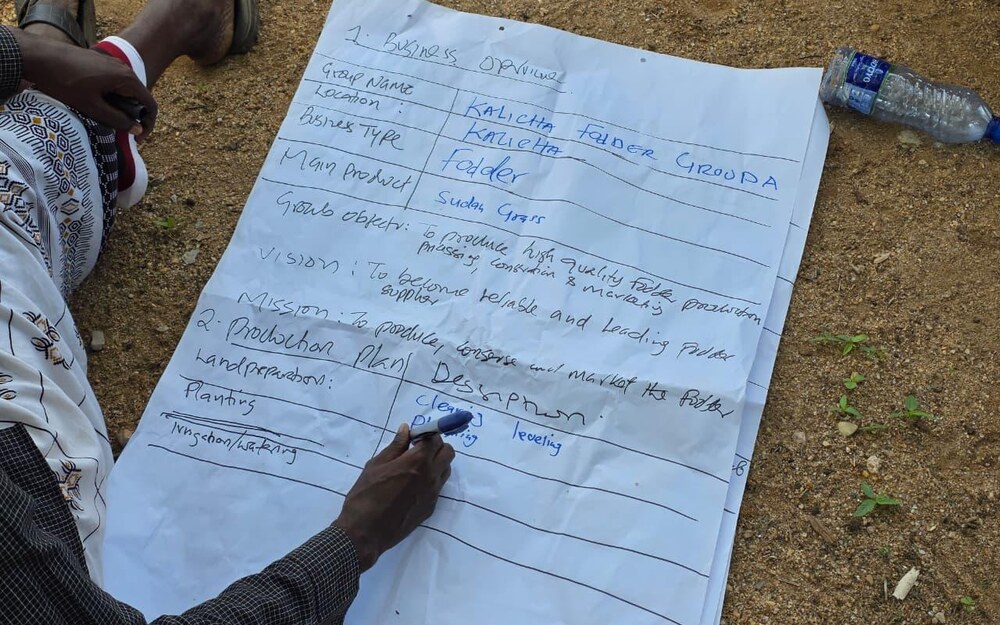 1. Business opvivine
Group Name KALICHA FODDER GROUDA
Location: KALICHA
Bisines Type Fodder
Main Product Sudan Grass
Groub objectv: To produce high quality fodder production
conservation & marketing
Vision: To become reliable and Leading Fodder
supplier
Mission: To produce, conserve and market the fodder
2. Production Plan Description.
Land preparation: Clearing leveling
Planting
Irrigation/watering